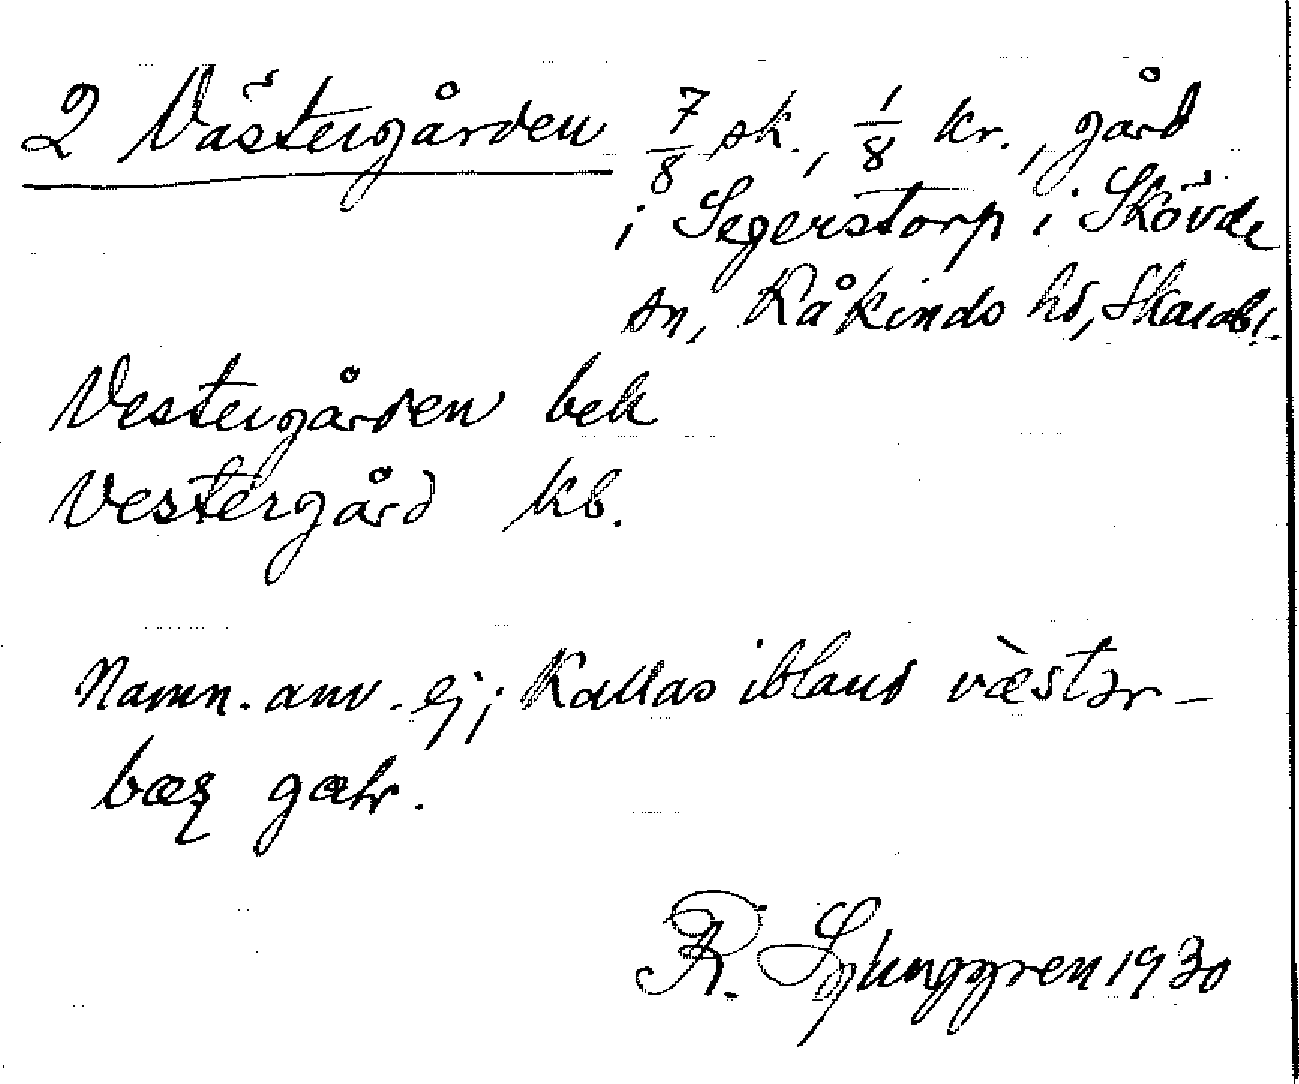 2 Västergården 7/8 sk., 1/8 kr., gård
i Segerstorp i Skövde
sn, Kåkinds hd, Skarabl.
Vestergården bek
Vestergård kb.
Namn. anv. ej; Kallas ibland væ̀stər-
gæ̂hr.
R. Ljunggren 1930